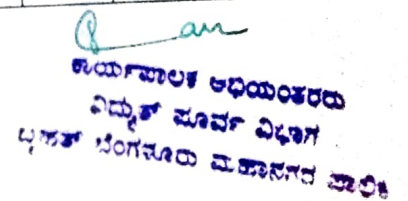 ಕಾರ್ಯಪಾಲಕ ಅಭಿಯಂತರರು
ವಿದ್ಯುತ್ ಪೂರ್ವ ವಿಭಾಗ
ಬೃಹತ್ ಬೆಂಗಳೂರು ಮಹಾನಗರ ಪಾಲಿಕೆ